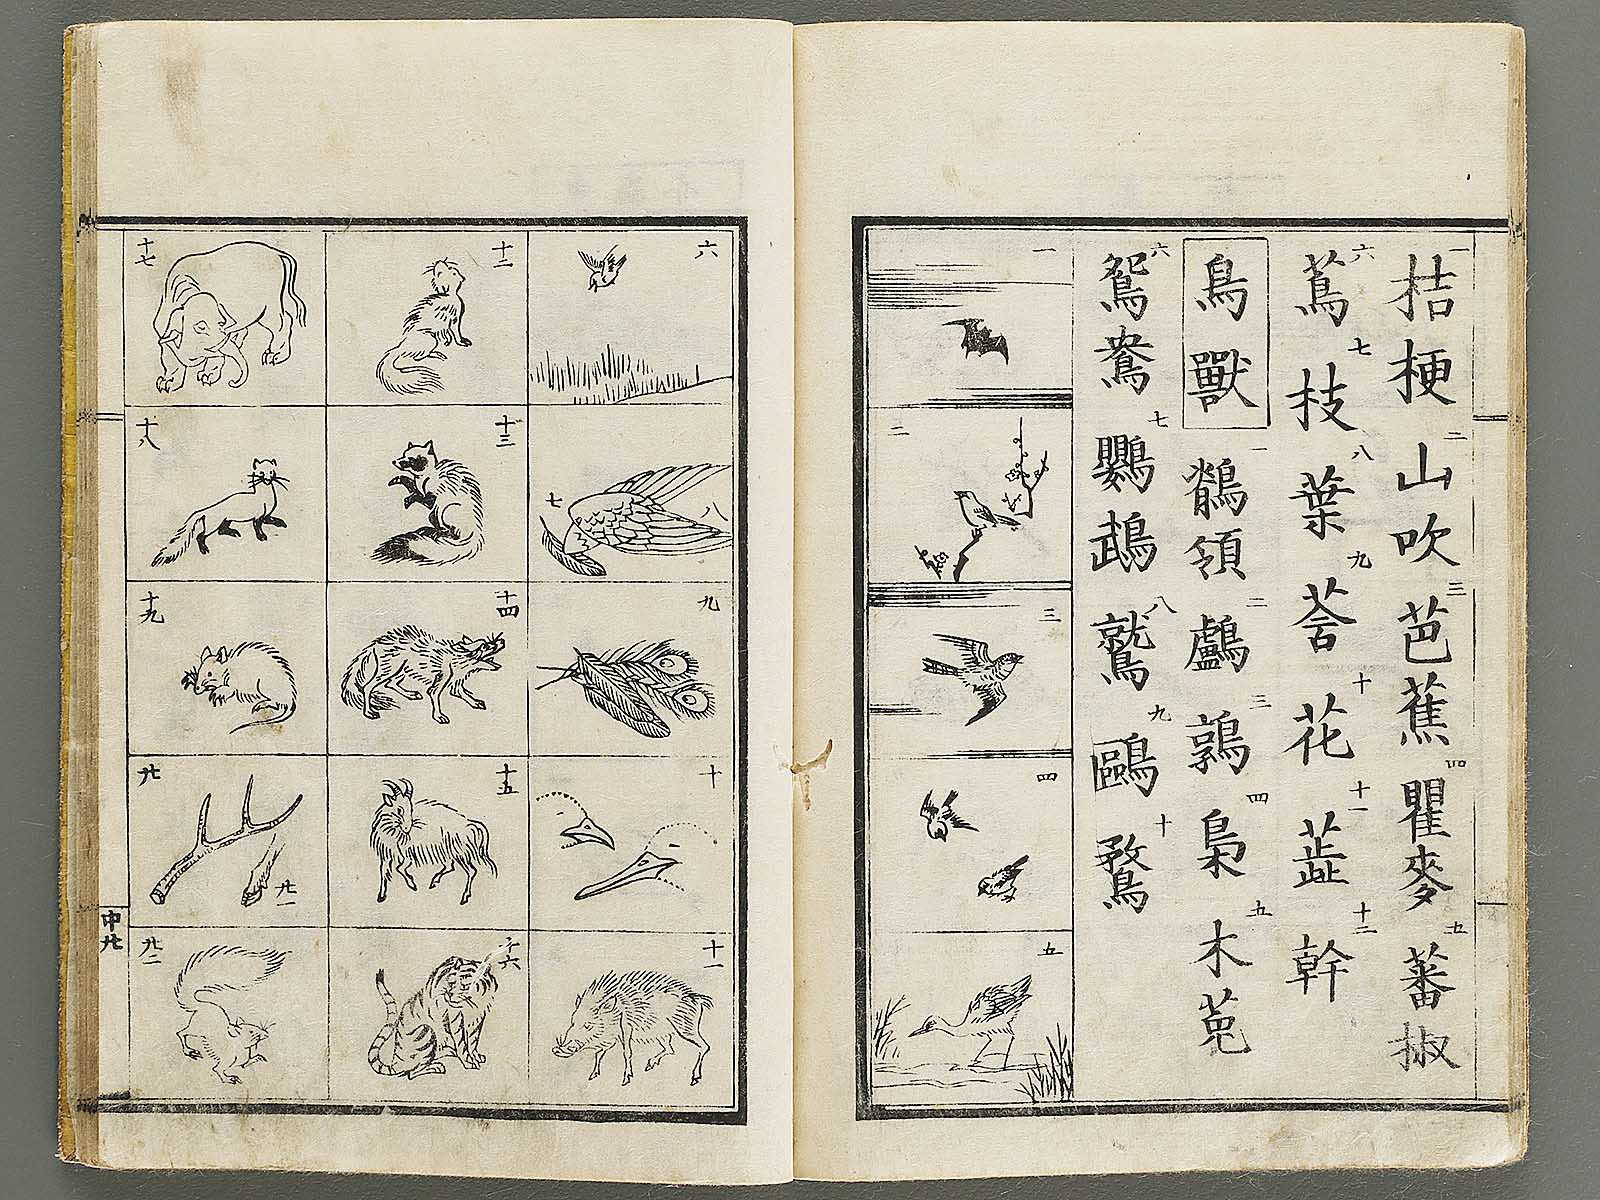 一 桔梗 二 山吹 三 芭蕉 四 瞿麥 五 蕃椒
六 蔦 七 枝 八 葉 九 莟 十 花 十一 蕋 十二 幹
鳥獸 一 鶺領 二 鸕 三 鶉 四 梟 五 木菟
六 鴛鴦 七 鸚鵡 八 鷲 九 鷗 十 鶩
一
二
三
四
五
六
七
八
九
十
十一
十二
十三
十四
十五
十六
十七
十八
十九
廿
廿一
廿二
中廿